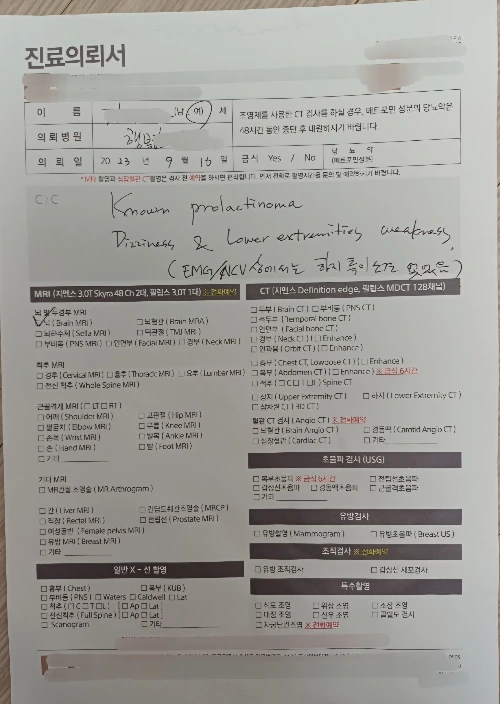 진료의뢰서
이 름 (남, 여) 세
의뢰병원
의뢰일 2023 년 9 월 16 일 금식 Yes / No 당뇨약 (메트포민성분)
조영제를 사용한 CT 검사를 하실 경우, 메트포민 성분의 당뇨약은
48시간 동안 중단 후 내원하시기 바랍니다.
C/C
Known prolactinoma
Dizziness & Lower extremities weakness,
MRI (지멘스 3.0T Skyra 48 Ch 2대, 필립스 3.0T 1대) ※전화예약
뇌 및 두경부 MRI
□ 뇌 (Brain MRI) □ 뇌혈관 (Brain MRA)
□ 뇌하수체 (Sella MRI) □ 턱관절 (TMJ MRI)
□ 부비동 (PNS MRI) □ 안면부 (Facial MRI) □ 경부 (Neck MRI)
척추 MRI
□ 경추 (Cervical MRI) □ 흉추 (Thoracic MRI) □ 요추 (Lumbar MRI)
□ 전신 척추 (Whole Spine MRI)
근골격계 MRI (□ LT □ RT)
□ 어깨 (Shoulder MRI) □ 고관절 (Hip MRI)
□ 팔꿈치 (Elbow MRI) □ 무릎 (Knee MRI)
□ 손목 (Wrist MRI) □ 발목 (Ankle MRI)
□ 손 (Hand MRI) □ 발 (Foot MRI)
□ 기타
기타 MRI
□ MR관절 조영술 (MR Arthrogram)
□ 간 (Liver MRI) □ 간담도췌관조영술 (MRCP)
□ 직장 (Rectal MRI) □ 전립선 (Prostate MRI)
□ 여성골반 (Female pelvis MRI)
□ 유방 MRI (Breast MRI)
□ 기타
일반 X - 선 촬영
□ 흉부 (Chest) □ 복부 (KUB)
□ 부비동 (PNS) □ Waters □ Caldwell □ Lat
□ 척추 (□ C □ T □ L) [□ Ap □ Lat]
□ 전신척추 (Full Spine) [□ Ap □ Lat]
□ Scanogram □ 기타
CT (지멘스 Definition edge, 필립스 MDCT 128채널)
□ 두부 (Brain CT) □ 부비동 (PNS CT)
□ 측두부 (Temporal bone CT)
□ 안면부 (Facial bone CT)
□ 경부 (Neck CT) (□ Enhance)
□ 안와골 (Orbit CT) (□ Enhance)
□ 흉부 (Chest CT, Lowdose CT) (□ Enhance)
□ 복부 (Abdomen CT) (□ Enhance) ※ 금식 6시간
□ 척추 (□ C □ T □ L) Spine CT
□ 상지 (Upper Extremity CT) □ 하지 (Lower Extremity CT)
□ 3차원 CT (3D CT)
혈관 CT 검사 (Angio CT) ※ 전화예약
□ 뇌혈관 (Brain Angio CT) □ 경동맥 (Carotid Angio CT)
□ 심장혈관 (Cardiac CT) □ 기타
초음파 검사 (USG)
□ 복부초음파 ※ 금식 6시간 □ 전립선초음파
□ 갑상선초음파 □ 경동맥초음파 □ 근골격초음파
□ 기타
유방검사
□ 유방촬영 (Mammogram) □ 유방초음파 (Breast US)
조직검사 ※ 전화예약
□ 유방 조직검사 □ 갑상선 세포검사
특수촬영
□ 식도 조영 □ 위장 조영 □ 소장 조영
□ 대장 조영 □ 신우 조영 □ 골밀도 검사
□ 자궁난관조영 ※ 전화예약